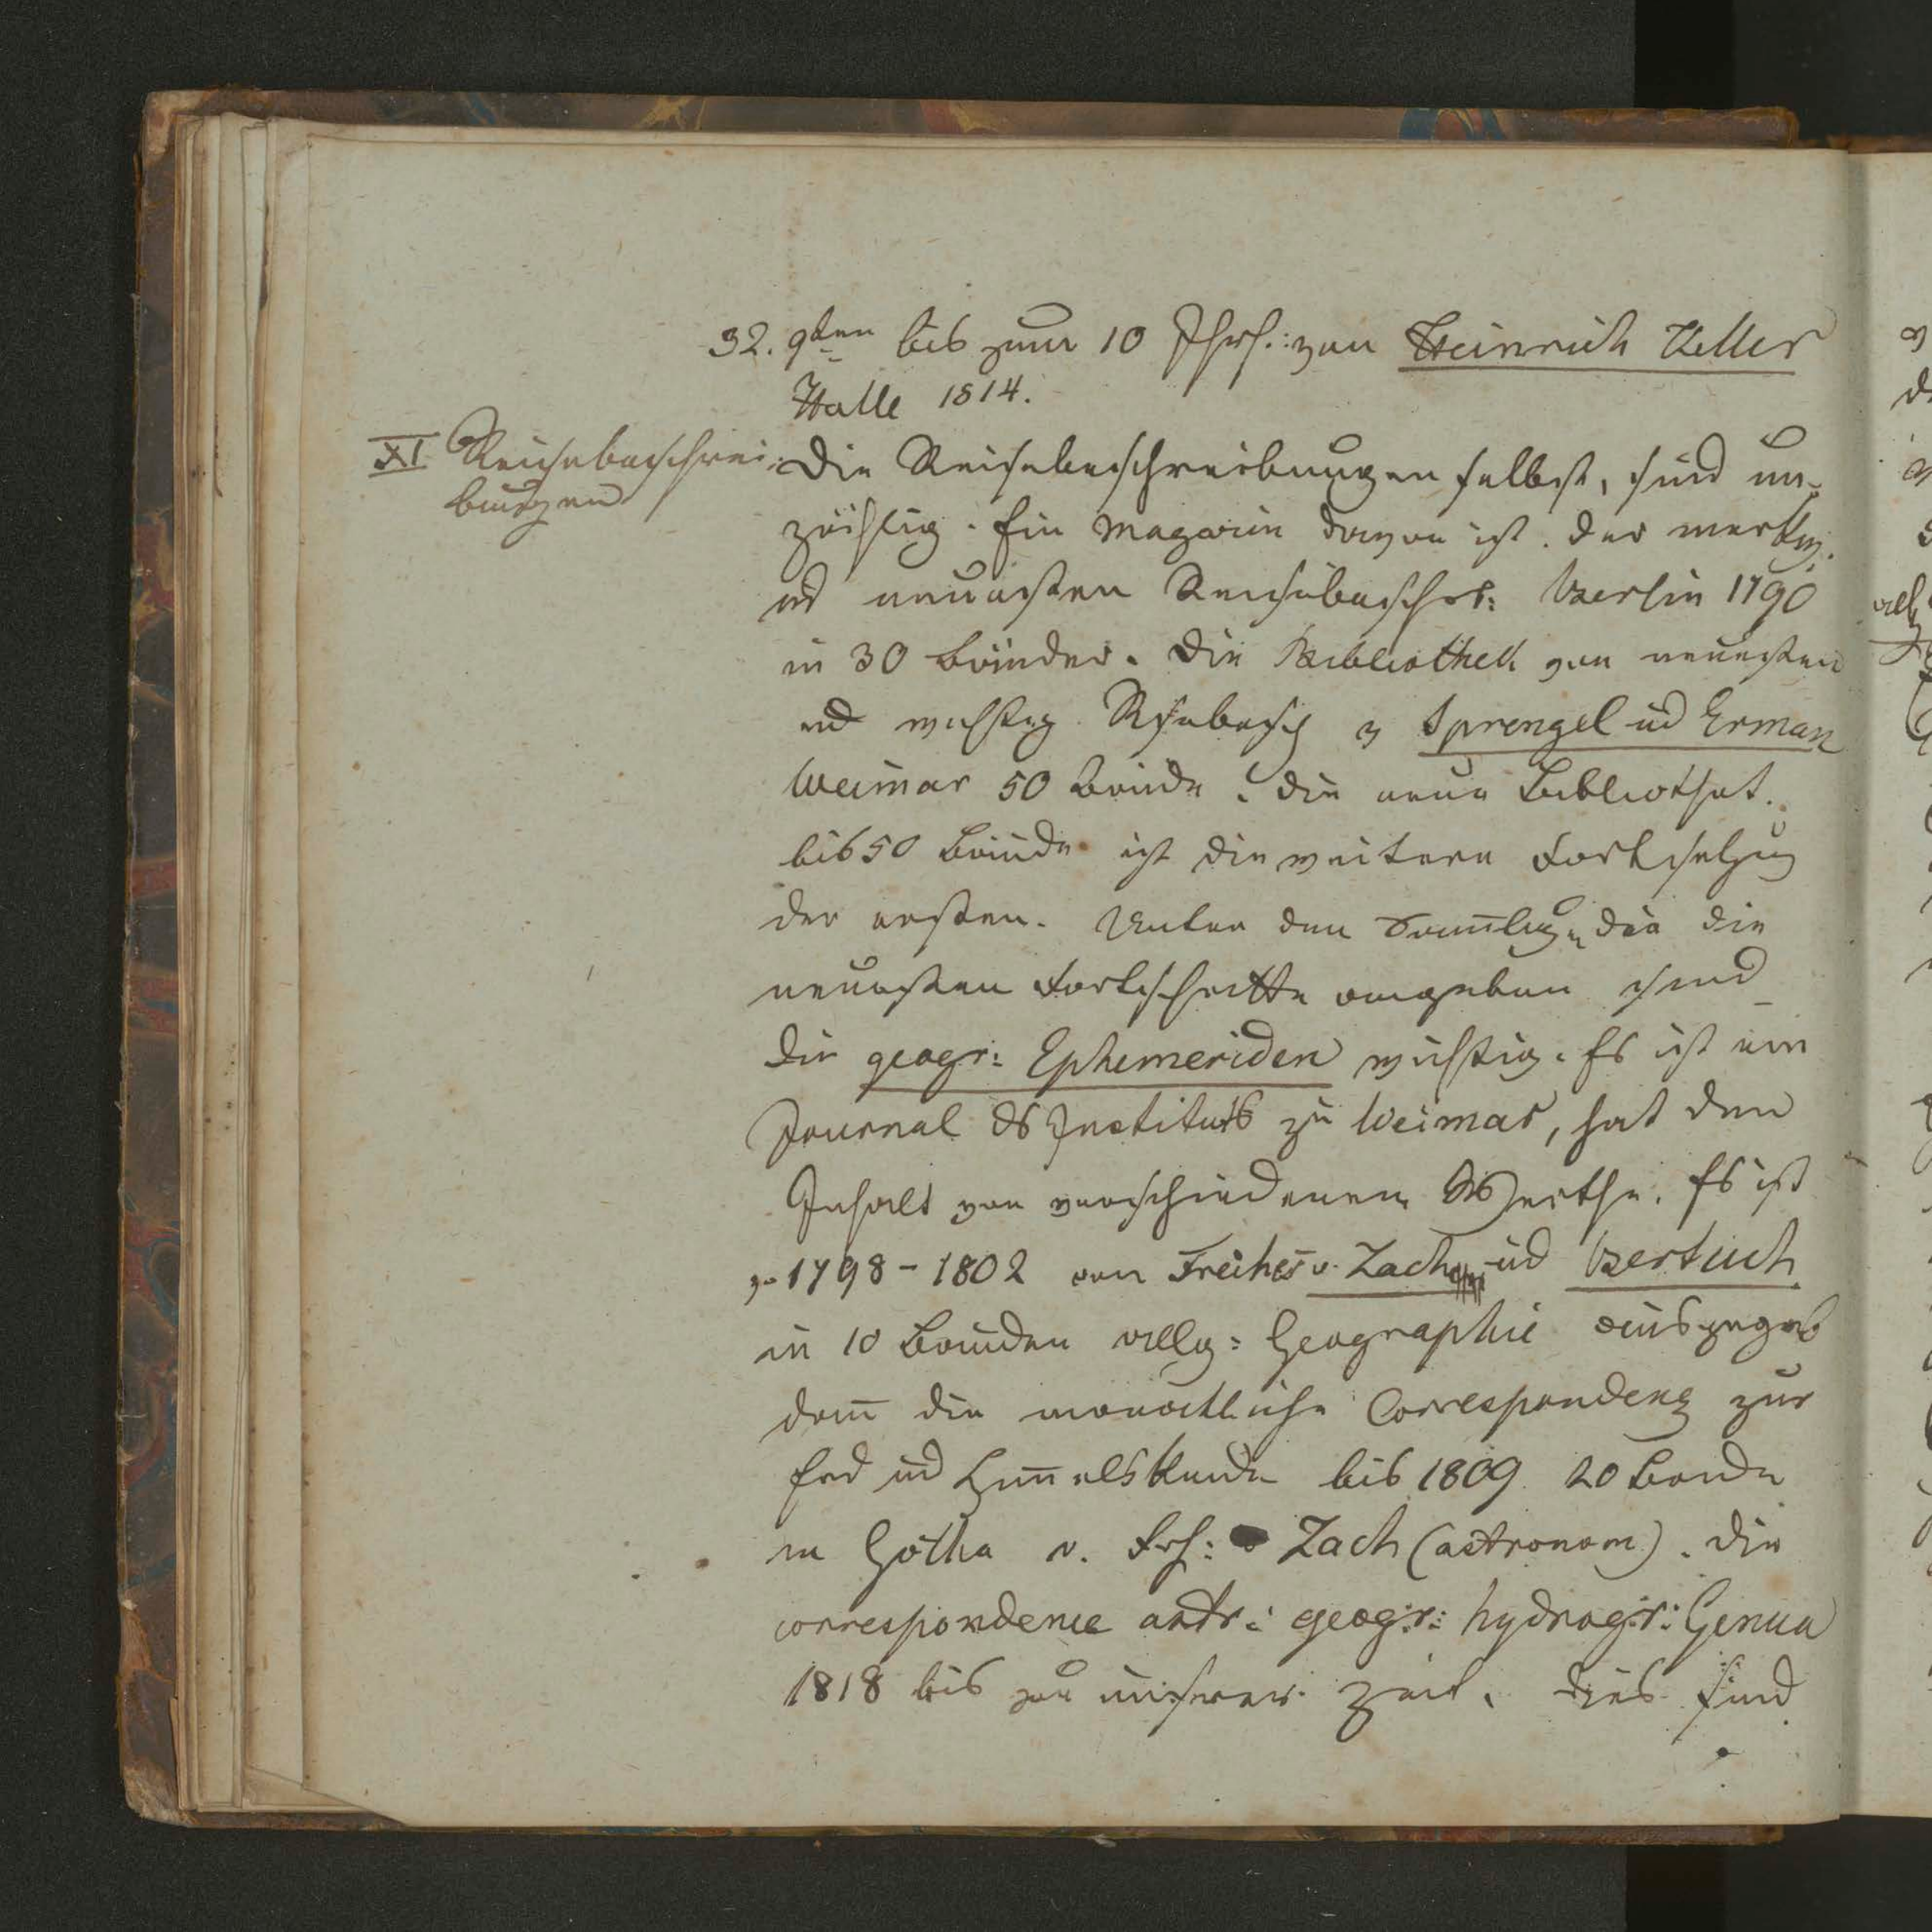 32. 9ten bis zum 10 Jhrh: von Heinrich Zeller
Halle 1814.
XI Reisebeschrei-
bungen
Die Reisebeschreibungen selbst, sind un-
zählig. Ein Magazin davon ist. der merkw.
ud neuesten Reisebeschr: Berlin 1790
in 30 Bänder. Die Bibliothek von neuesten
ud wichtig Rsebesch v Sprengel ud Erman
Weimar 50 Bände. Die neue Bibliothek.
bis 50 Bände ist die weitere Fortsetzug
der ersten. Unter den Samlugn die die
neuesten Fortschritte angeben sind
die geogr: Ephemeriden wichtig. Es ist ein
Journal ds Instituts zu Weimar, hat den
Inhalt von verschiedenem Werthe. Es ist
v. 1798-1802 von Freiher v. Zach ud Bertuch
in 10 Bänden allg: Geographie ausgegeb
dan die monatliche Correspondenz zur
Erd ud Himelskunde bis 1809 20 Bande
in Gotha v. Frh: v Zach (astronom). Die
correspondence astr: geogr: hydrogr: Genua
1818 bis zu unserer Zeit. Dies sind